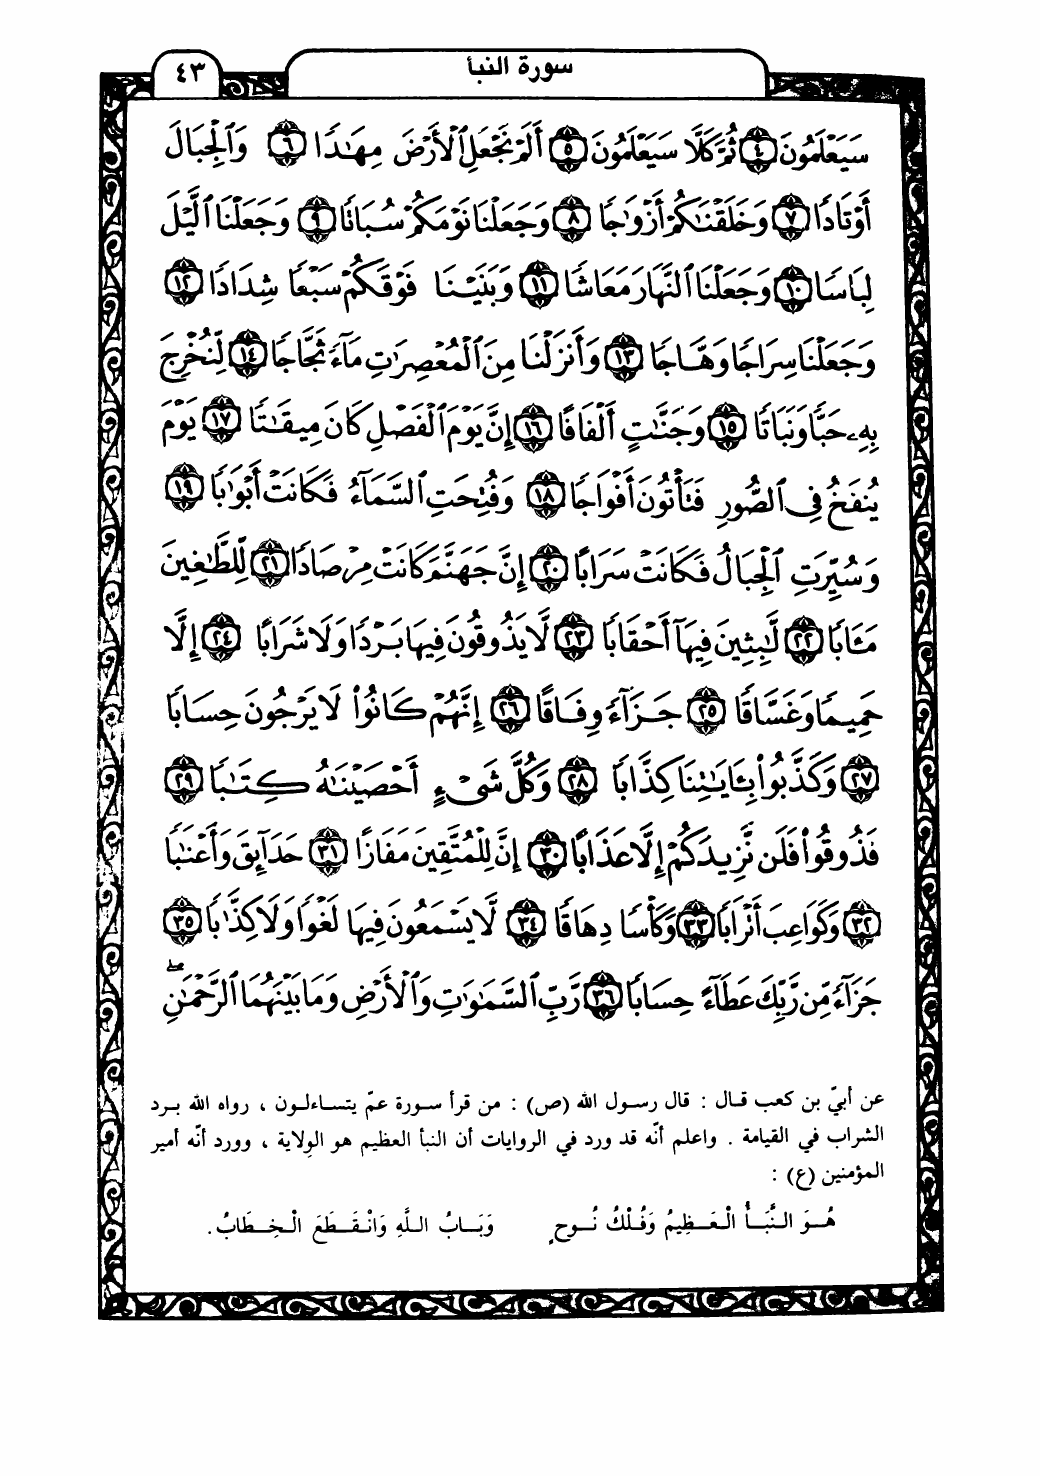 سورة النبأ
٤٣
سَيَعْلَمُونَ ٤ ثُمَّ كَلَّا سَيَعْلَمُونَ ٥ أَلَمْ نَجْعَلِ ٱلْأَرْضَ مِهَٰدًا ٦ وَٱلْجِبَالَ
أَوْتَادًا ٧ وَخَلَقْنَٰكُمْ أَزْوَٰجًا ٨ وَجَعَلْنَا نَوْمَكُمْ سُبَاتًا ٩ وَجَعَلْنَا ٱلَّيْلَ
لِبَاسًا ١٠ وَجَعَلْنَا ٱلنَّهَارَ مَعَاشًا ١١ وَبَنَيْنَا فَوْقَكُمْ سَبْعًا شِدَادًا ١٢
وَجَعَلْنَا سِرَاجًا وَهَّاجًا ١٣ وَأَنزَلْنَا مِنَ ٱلْمُعْصِرَٰتِ مَآءً ثَجَّاجًا ١٤ لِّنُخْرِجَ
بِهِۦ حَبًّا وَنَبَاتًا ١٥ وَجَنَّٰتٍ أَلْفَافًا ١٦ إِنَّ يَوْمَ ٱلْفَصْلِ كَانَ مِيقَٰتًا ١٧ يَوْمَ
يُنفَخُ فِى ٱلصُّورِ فَتَأْتُونَ أَفْوَاجًا ١٨ وَفُتِحَتِ ٱلسَّمَآءُ فَكَانَتْ أَبْوَٰبًا ١٩
وَسُيِّرَتِ ٱلْجِبَالُ فَكَانَتْ سَرَابًا ٢٠ إِنَّ جَهَنَّمَ كَانَتْ مِرْصَادًا ٢١ لِّلطَّٰغِينَ
مَـَٔابًا ٢٢ لَّٰبِثِينَ فِيهَآ أَحْقَابًا ٢٣ لَّا يَذُوقُونَ فِيهَا بَرْدًا وَلَا شَرَابًا ٢٤ إِلَّا
حَمِيمًا وَغَسَّاقًا ٢٥ جَزَآءً وِفَاقًا ٢٦ إِنَّهُمْ كَانُوا۟ لَا يَرْجُونَ حِسَابًا
٢٧ وَكَذَّبُوا۟ بِـَٔايَٰتِنَا كِذَّابًا ٢٨ وَكُلَّ شَىْءٍ أَحْصَيْنَٰهُ كِتَٰبًا ٢٩
فَذُوقُوا۟ فَلَن نَّزِيدَكُمْ إِلَّا عَذَابًا ٣٠ إِنَّ لِلْمُتَّقِينَ مَفَازًا ٣١ حَدَآئِقَ وَأَعْنَٰبًا
٣٢ وَكَوَاعِبَ أَتْرَابًا ٣٣ وَكَأْسًا دِهَاقًا ٣٤ لَّا يَسْمَعُونَ فِيهَا لَغْوًا وَلَا كِذَّٰبًا ٣٥
جَزَآءً مِّن رَّبِّكَ عَطَآءً حِسَابًا ٣٦ رَّبِّ ٱلسَّمَٰوَٰتِ وَٱلْأَرْضِ وَمَا بَيْنَهُمَا ٱلرَّحْمَٰنِ ۖ
عن أبيّ بن كعب قال : قال رسول الله (ص) : من قرأ سورة عمّ يتساءلون ، رواه الله برد
الشراب في القيامة . واعلم أنّه قد ورد في الروايات أن النبأ العظيم هو الولاية ، وورد أنّه أمير
المؤمنين (ع) :
هُوَ النَّبَأُ الْعَظِيمُ وَفُلْكُ نُوحٍ وَبَابُ اللَّهِ وَانْقَطَعَ الْخِطَابُ .